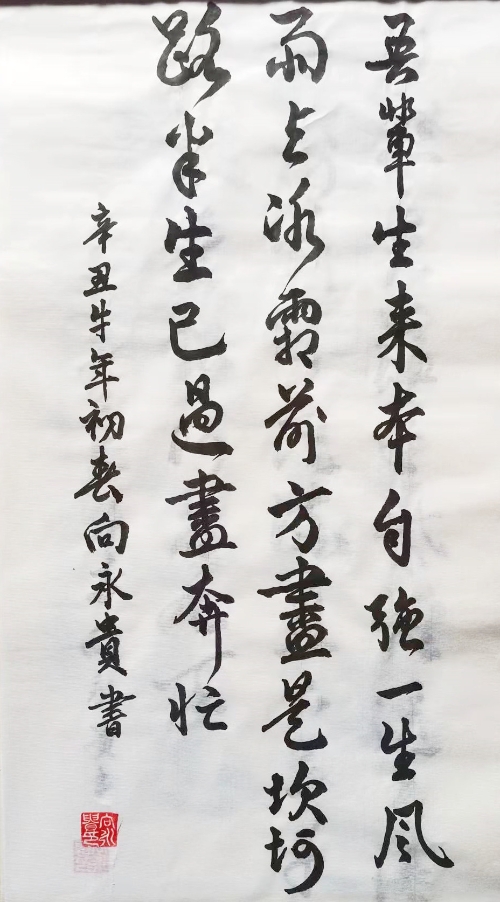 吾輩生来本自強一生風
雨与冰霜前方盡是坎坷
路半生已過盡奔忙
辛丑牛年初春向永貴書